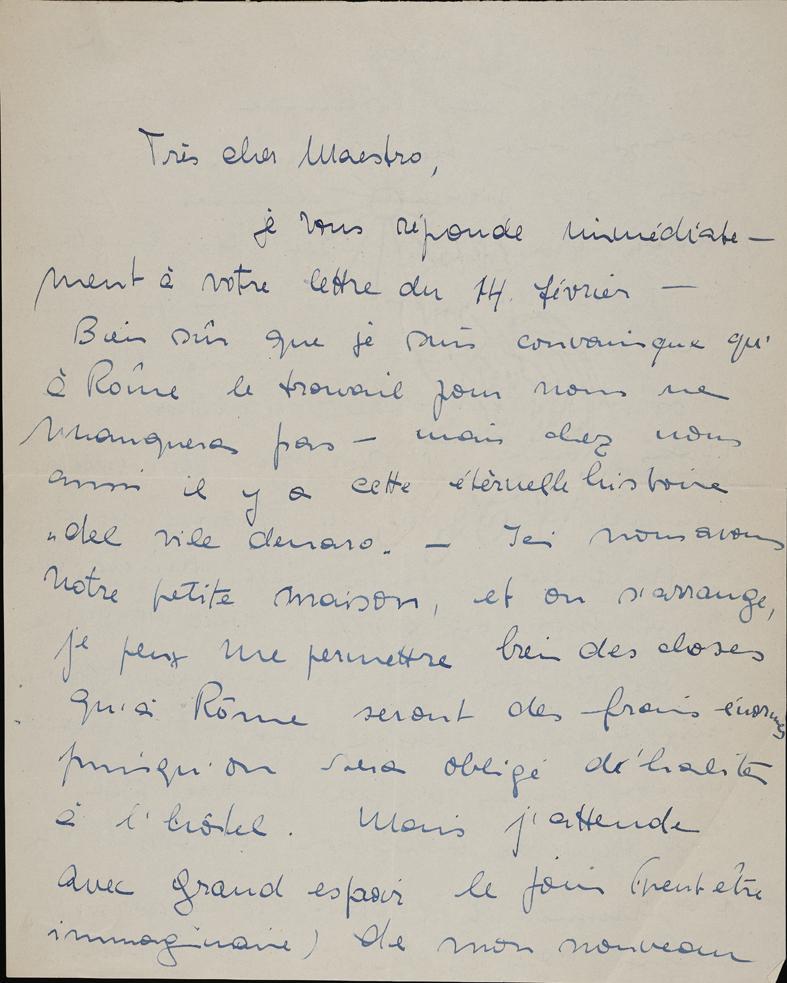 Très cher Maestro,
je vous réponde immédiate-
ment à votre lettre du 14. février —
Bien sûr que je suis convainsque qu'
à Rôme le travail pour nous ne
manquera pas — mais chez nous
aussi il y a cette éternelle histoire
„del vile denaro„ — Ici nous avons
notre petite maison, et on s'arrange,
je peux me permettre bien des choses
qu'à Rôme seront des frais énormes
puisqu'on sera obligé de'habiter
à l'hôtel. Mais j'attende
avec grand espoir le jour (peut etre
immaginaire) de mon nouveau